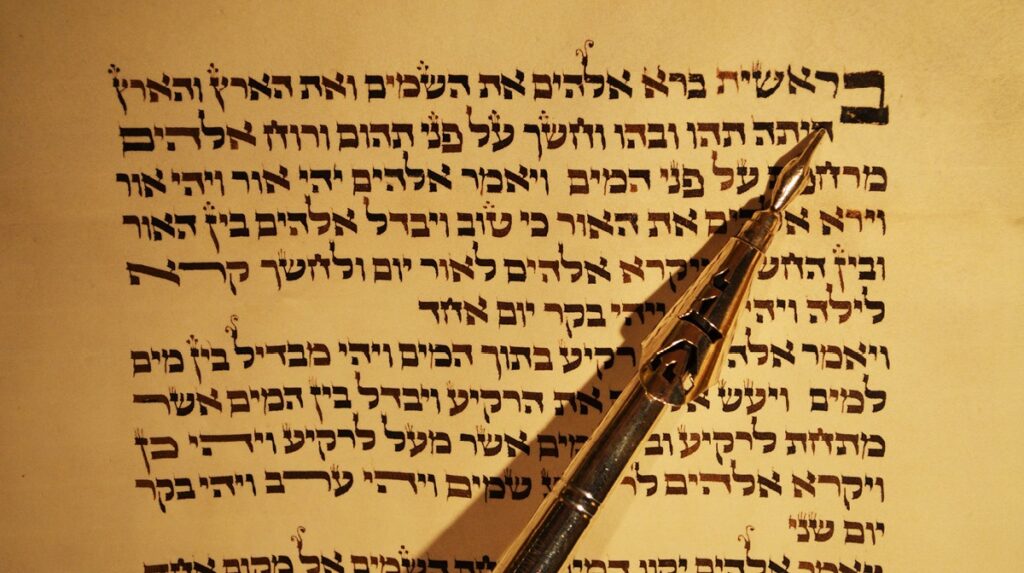 בראשית ברא אלהים את השמים ואת הארץ והארץ
היתה תהו ובהו וחשך על פני תהום ורוח אלהים
על פני המים ויאמר אלהים יהי אור ויהי אור
וירא את האור כי טוב ויבדל אלהים בין האור
ובין ויקרא אלהים לאור יום ולחשך קרא
לילה ויהי ויהי בקר יום אחד
ויאמר רקיע בתוך המים ויהי מבדיל בין מים
למים ויעש את הרקיע ויבדל בין המים אשר
מתחת לרקיע אשר מעל לרקיע ויהי כן
ויקרא אלהים שמים ויהי ערב ויהי בקר
יום שני
ויאמר אלהים יקוו המים השמים אל מקום אחד